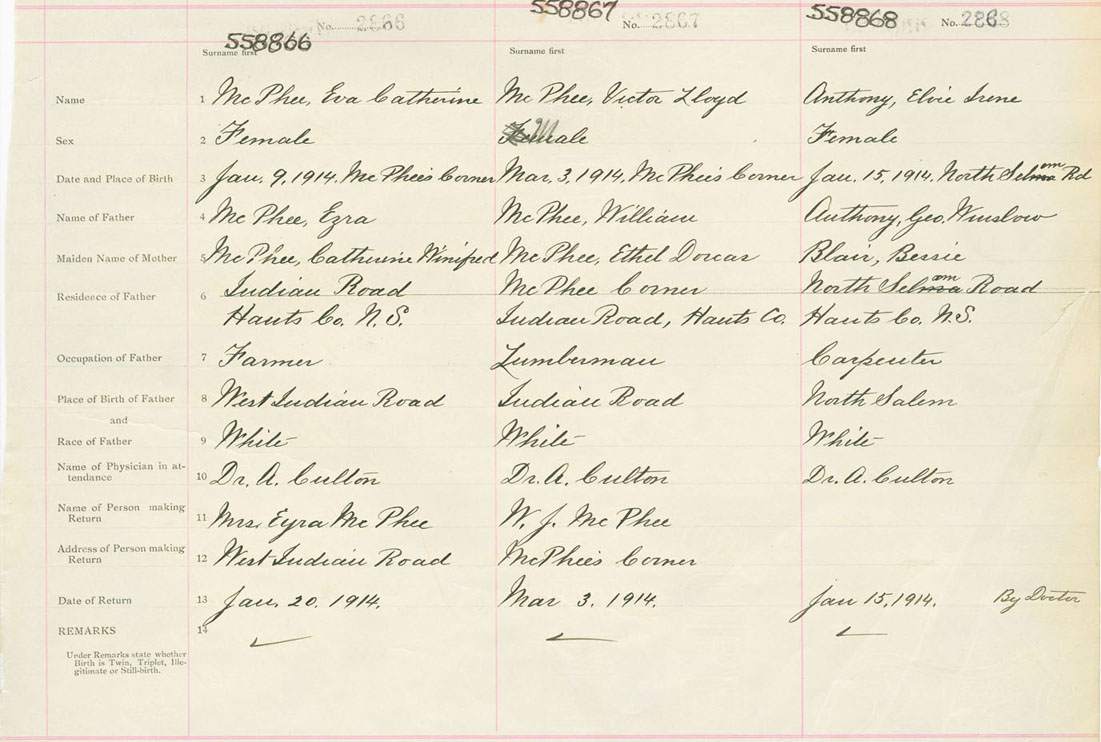 558866 No. 2866 558867 No. 2867 558868 No. 2868
Surname first Surname first Surname first
Name 1 Mc Phee, Eva Catherine Mc Phee, Victor Lloyd Anthony, Elvie Irene
Sex 2 Female Female M Female
Date and Place of Birth 3 Jan. 9, 1914. Mc Phee's Corner Mar, 3, 1914. Mc Phee's Corner Jan. 15, 1914. North Selma em Rd
Name of Father 4 Mc Phee, Ezra Mc Phee, William Anthony, Geo. Winslow
Maiden Name of Mother 5 Mc Phee, Catherine Winifred Mc Phee, Ethel Dorcas Blair, Bessie
Residence of Father 6 Indian Road Mc Phee Corner North Selma em Road
Hants Co. N.S. Indian Road, Hants Co. Hants Co. N.S.
Occupation of Father 7 Farmer Lumberman Carpenter
Place of Birth of Father 8 West Indian Road Indian Road North Salem
and
Race of Father 9 White White White
Name of Physician in at- 10 Dr. A. Culton Dr. A. Culton Dr. A. Culton
tendance
Name of Person making 11 Mrs. Eyra Mc Phee W. J. Mc Phee
Return
Address of Person making 12 West Indian Road McPhee's Corner
Return
Date of Return 13 Jan. 20. 1914. Mar 3. 1914. Jan 15, 1914. By Doctor
REMARKS 14
Under Remarks state whether
Birth is Twin, Triplet, Ille-
gitimate or Still-birth.